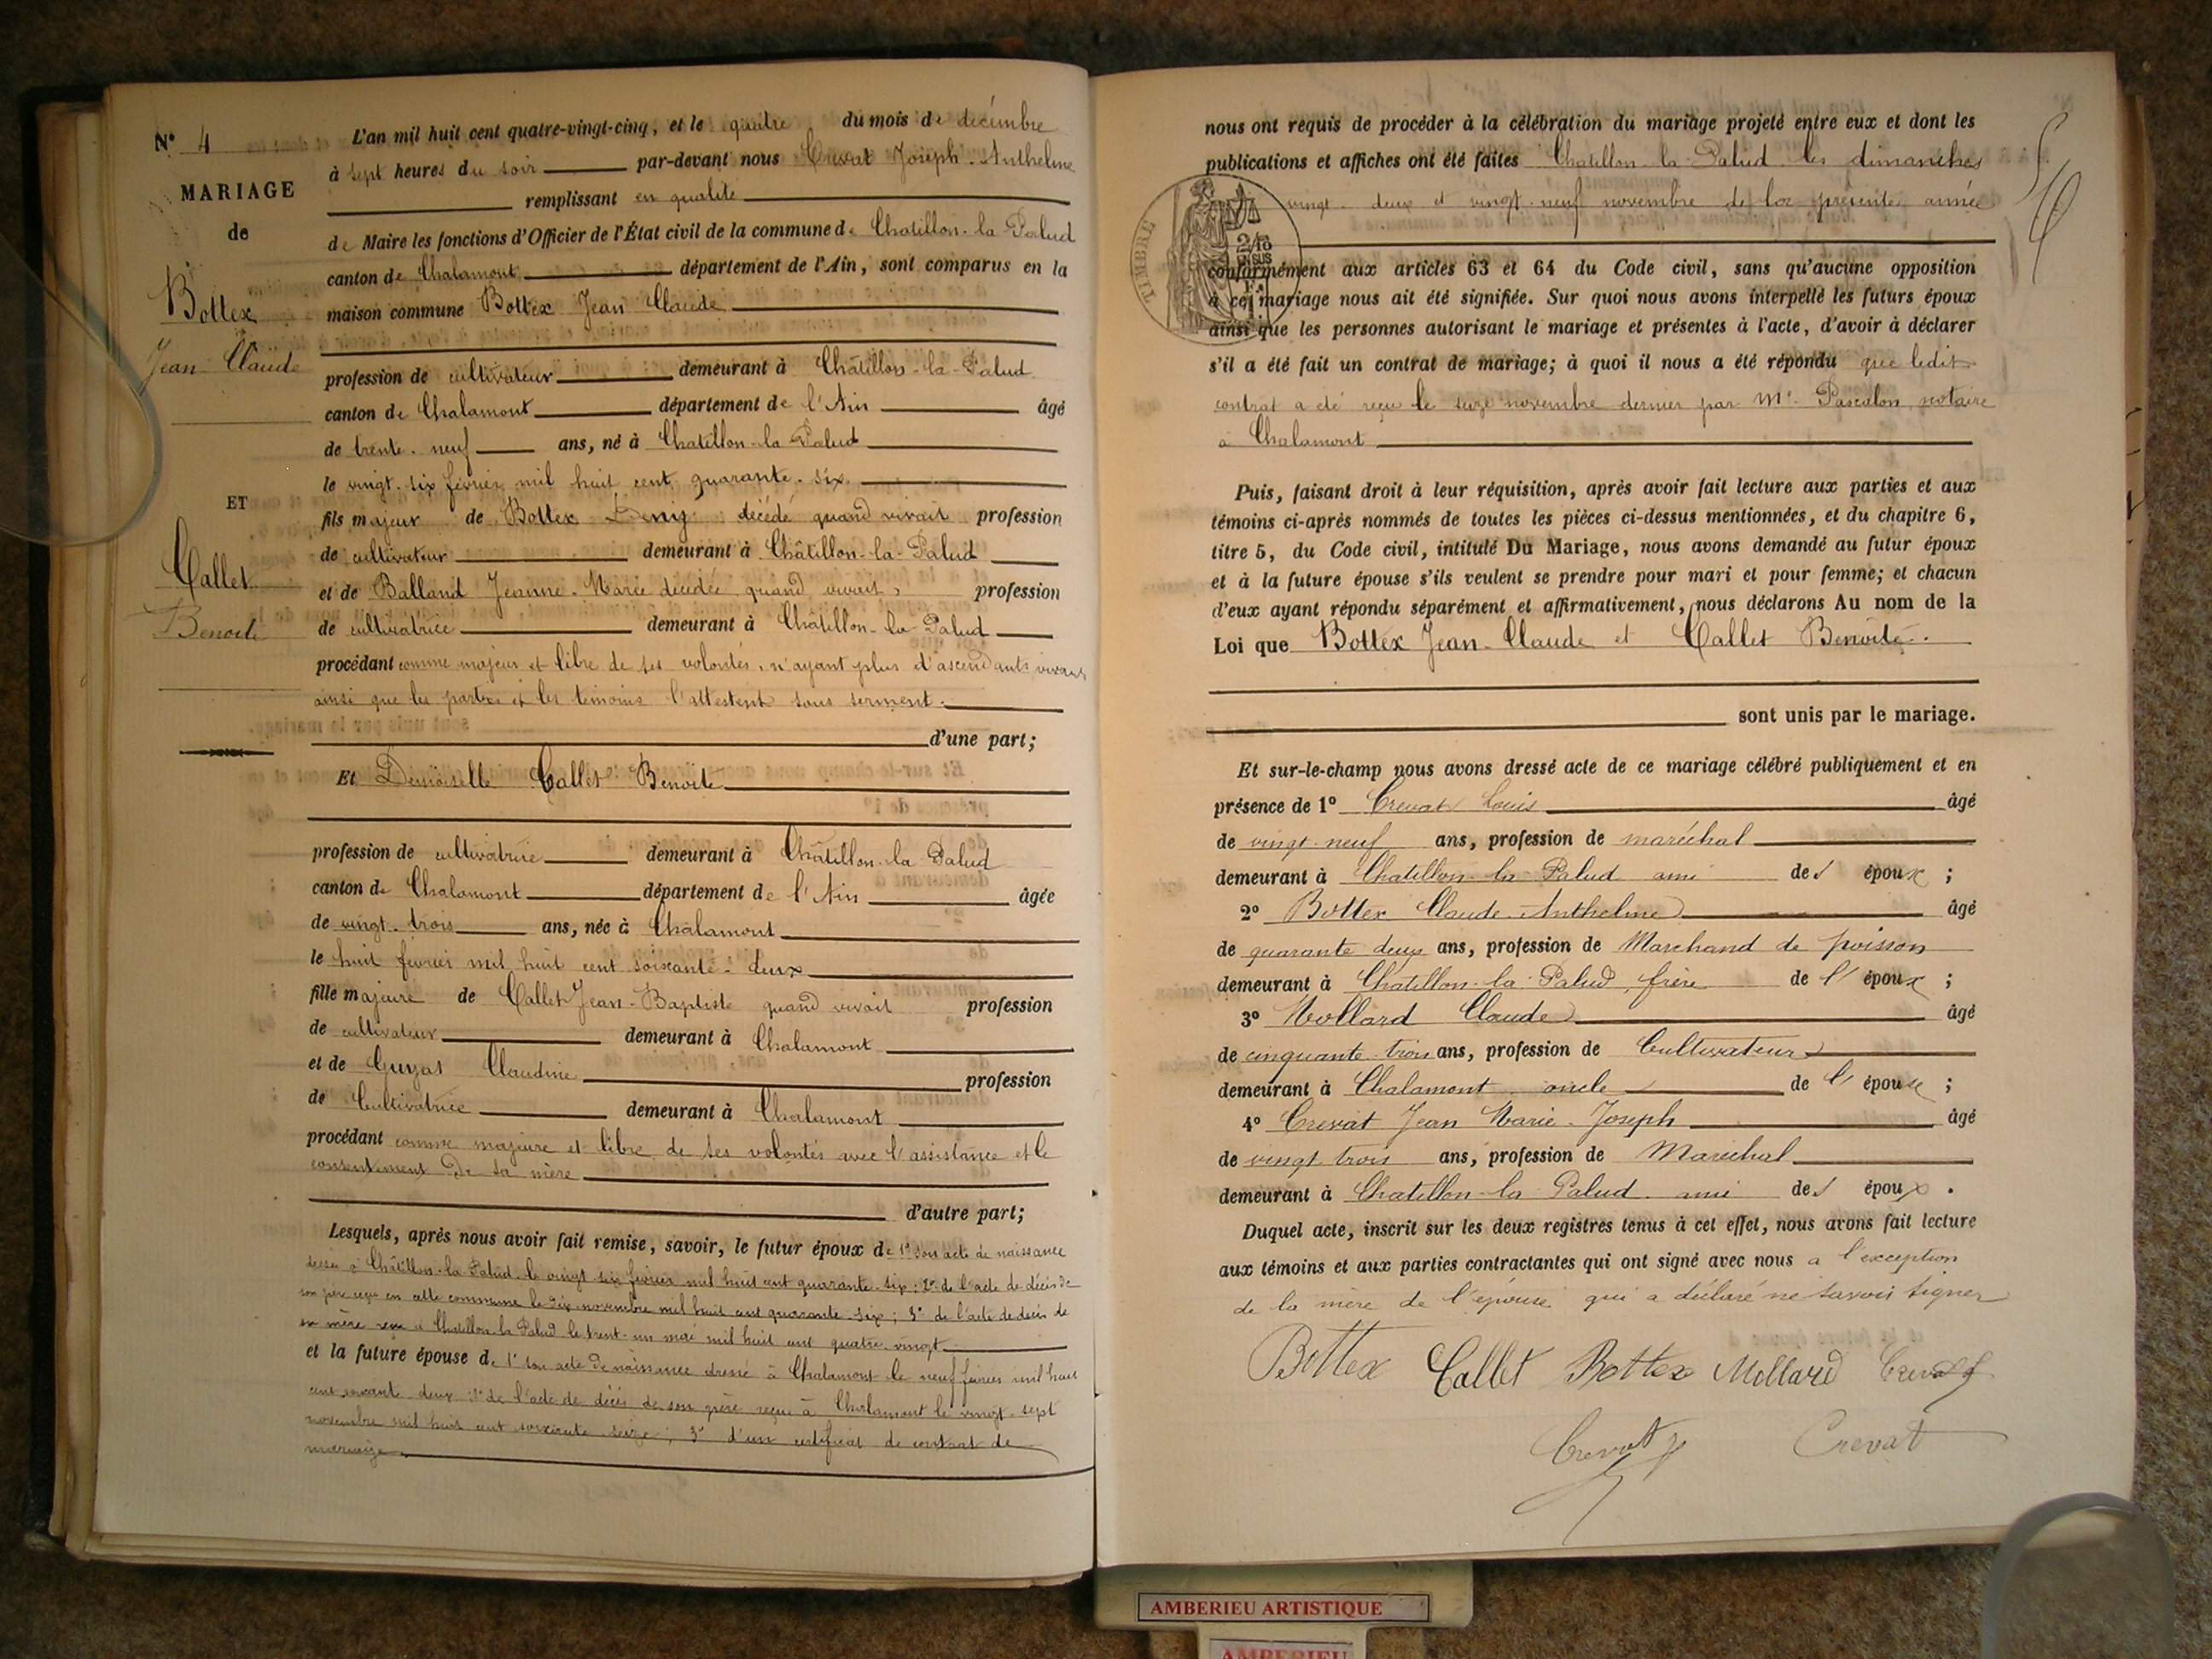 N° 4
MARIAGE
de
Bottex
Jean Claude
ET
Callet
Benoite
L'an mil huit cent quatre-vingt-cinq, et le quatre du mois de décembre
à sept heures du soir par-devant nous Crevat Joseph-Anthelme
remplissant en qualité
de Maire les fonctions d'Officier de l'État civil de la commune de Chatillon-la-Palud
canton de Chalamont département de l'Ain, sont comparus en la
maison commune Bottex Jean Claude
profession de cultivateur demeurant à Châtillon-la-Palud
canton de Chalamont département de l'Ain âgé
de trente-neuf ans, né à Chatillon-la-Palud
le vingt-six février mil huit cent quarante-six
fils majeur de Bottex Deniz décédé quand vivait profession
de cultivateur demeurant à Châtillon-la-Palud
et de Balland Jeanne-Marie décédée quand vivait, profession
de cultivatrice demeurant à Châtillon-la-Palud
procédant comme majeur et libre de ses volontés, n'ayant plus d'ascendants vivants
ainsi que les parties et les témoins l'attestent sous serment.
d'une part;
Et Demoiselle Callet Benoite
profession de cultivatrice demeurant à Châtillon-la-Palud
canton de Chalamont département de l'Ain âgée
de vingt-trois ans, née à Chalamont
le huit février mil huit cent soixante-deux
fille majeure de Callet Jean-Baptiste quand vivait profession
de cultivateur demeurant à Chalamont
et de Guyat Claudine profession
de Cultivatrice demeurant à Chalamont
procédant comme majeure et libre de ses volontés avec l'assistance et le
consentement de sa mère
d'autre part;
Lesquels, après nous avoir fait remise, savoir, le futur époux de 1° son acte de naissance
dressé à Châtillon-la-Palud le vingt-six février mil huit cent quarante-six; 2° de l'acte de décès de
son père reçu en cette commune le dix novembre mil huit cent quarante-six; 3° de l'acte de décès de
sa mère reçu à Chatillon-la-Palud le trent-un mai mil huit cent quatre-vingt
et la future épouse de 1° son acte de naissance dressé à Chalamont le neuf février mil huit
cent soixante deux 2° de l'acte de décès de son père reçu à Chalamont le vingt-sept
novembre mil huit cent soixante-seize; 3° d'un certificat de contrat de
mariage
nous ont requis de procéder à la célébration du mariage projeté entre eux et dont les
publications et affiches ont été faites Chatillon-la-Palud les dimanches
vingt-deux et vingt-neuf novembre de la présente année
TIMBRE
conformément aux articles 63 et 64 du Code civil, sans qu'aucune opposition
à ce mariage nous ait été signifiée. Sur quoi nous avons interpellé les futurs époux
ainsi que les personnes autorisant le mariage et présentes à l'acte, d'avoir à déclarer
s'il a été fait un contrat de mariage; à quoi il nous a été répondu que ledit
contrat a été reçu le seize novembre dernier par Me Pascalon notaire
à Chalamont
Puis, faisant droit à leur réquisition, après avoir fait lecture aux parties et aux
témoins ci-après nommés de toutes les pièces ci-dessus mentionnées, et du chapitre 6,
titre 5, du Code civil, intitulé Du Mariage, nous avons demandé au futur époux
et à la future épouse s'ils veulent se prendre pour mari et pour femme; et chacun
d'eux ayant répondu séparément et affirmativement, nous déclarons Au nom de la
Loi que Bottex Jean-Claude et Callet Benoite
sont unis par le mariage.
Et sur-le-champ nous avons dressé acte de ce mariage célébré publiquement et en
présence de 1° Crevat Louis âgé
de vingt-neuf ans, profession de maréchal
demeurant à Chatillon-la-Palud ami des époux ;
2° Bottex Claude-Anthelme âgé
de quarante deux ans, profession de Marchand de poisson
demeurant à Chatillon-la-Palud, frère de l'époux ;
3° Mollard Claude âgé
de cinquante-trois ans, profession de Cultivateur
demeurant à Chalamont oncle de l'épouse ;
4° Crevat Jean Marie-Joseph âgé
de vingt trois ans, profession de Maréchal
demeurant à Chatillon-la-Palud ami des époux .
Duquel acte, inscrit sur les deux registres tenus à cet effet, nous avons fait lecture
aux témoins et aux parties contractantes qui ont signé avec nous a l'exception
de la mère de l'épouse qui a déclaré ne savoir signer
Bottex Callet Bottex Mollard Crevat
Crevat Crevat
AMBERIEU ARTISTIQUE
AMBERIEU